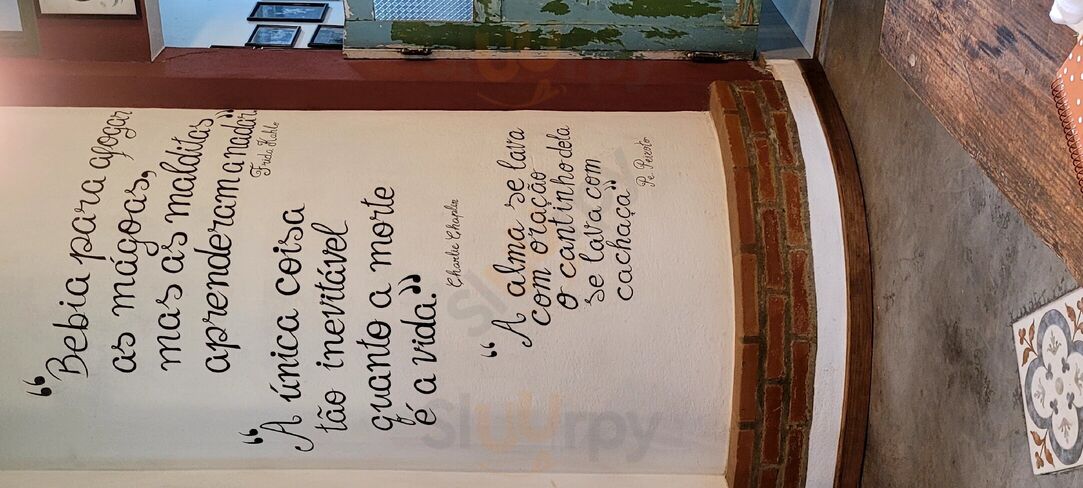 "Bebia para afogar
as mágoas,
mas as malditas
aprenderam a nadar."
Frida Kahlo
"A única coisa
tão inevitável
quanto a morte
é a vida."
Charlie Chaplin
"A alma se lava
com oração
o cantinho dela
se lava com
cachaça"
Pe. Peixoto
Sluurpy